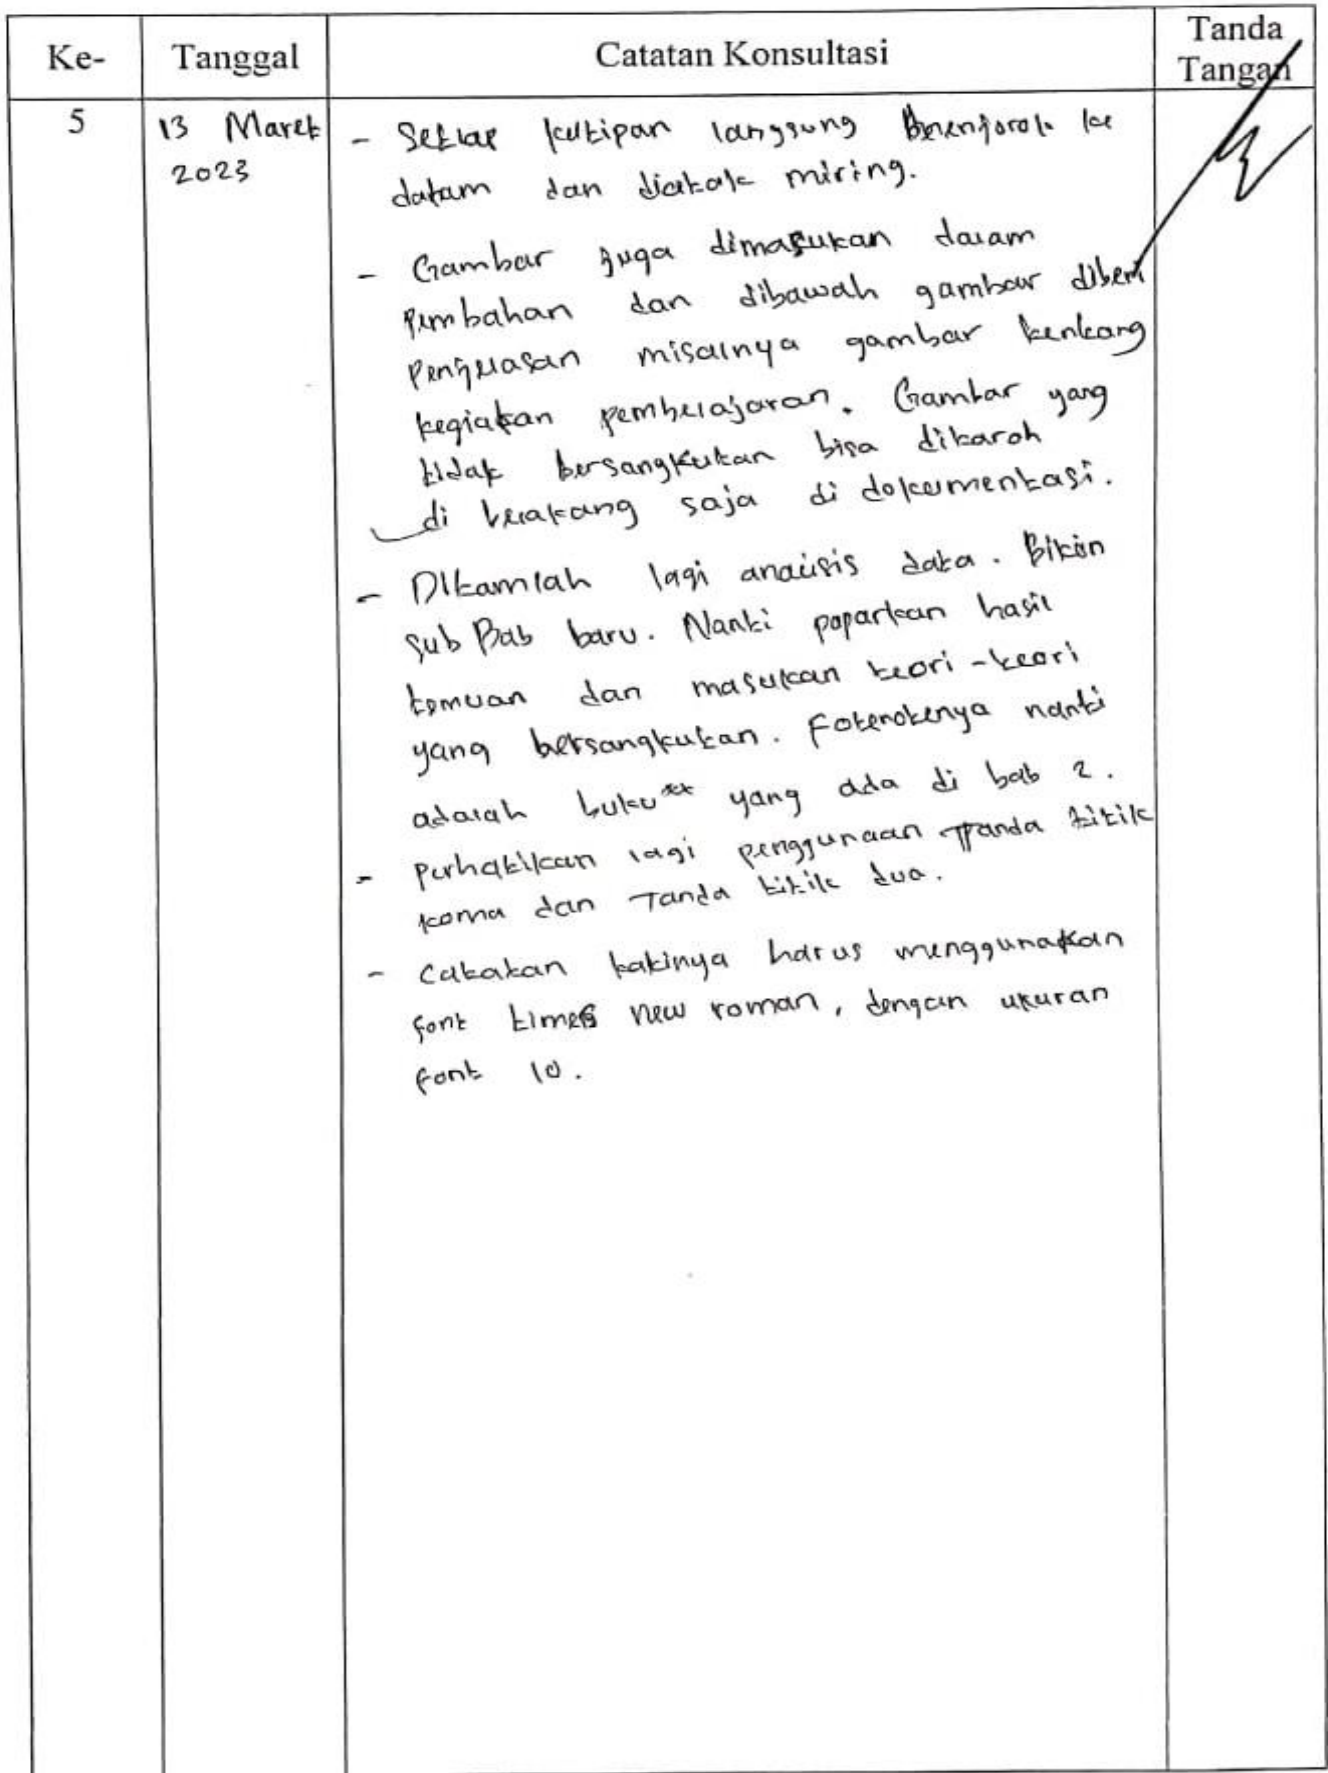 Ke-
Tanggal
Catatan Konsultasi
Tanda
Tangan
5
13 Maret
2023
- Setiap kutipan langsung menjorok ke
dalam dan dicetak miring.
- Gambar juga dimasukan dalam
pembahan dan dibawah gambar diberi
penjelasan misalnya gambar tentang
kegiatan pembelajaran. Gambar yang
tidak bersangkutan bisa ditaroh
di belakang saja di dokumentasi.
- Ditamlah lagi analisis data. Bikin
sub Bab baru. Nanti paparkan hasil
temuan dan masukan teori-teori
yang bersangkutan. Fotenotenya nanti
adalah buku" yang ada di bab 2.
- Perhatikan lagi penggunaan Tanda titik
koma dan Tanda titik dua.
- Catatan kakinya harus menggunakan
font times new roman, dengan ukuran
font 10.